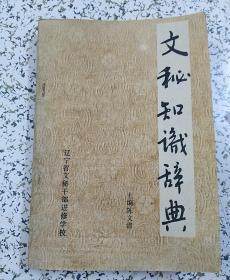 文秘知識辞典
主编陈文清
辽宁省文秘干部进修学校